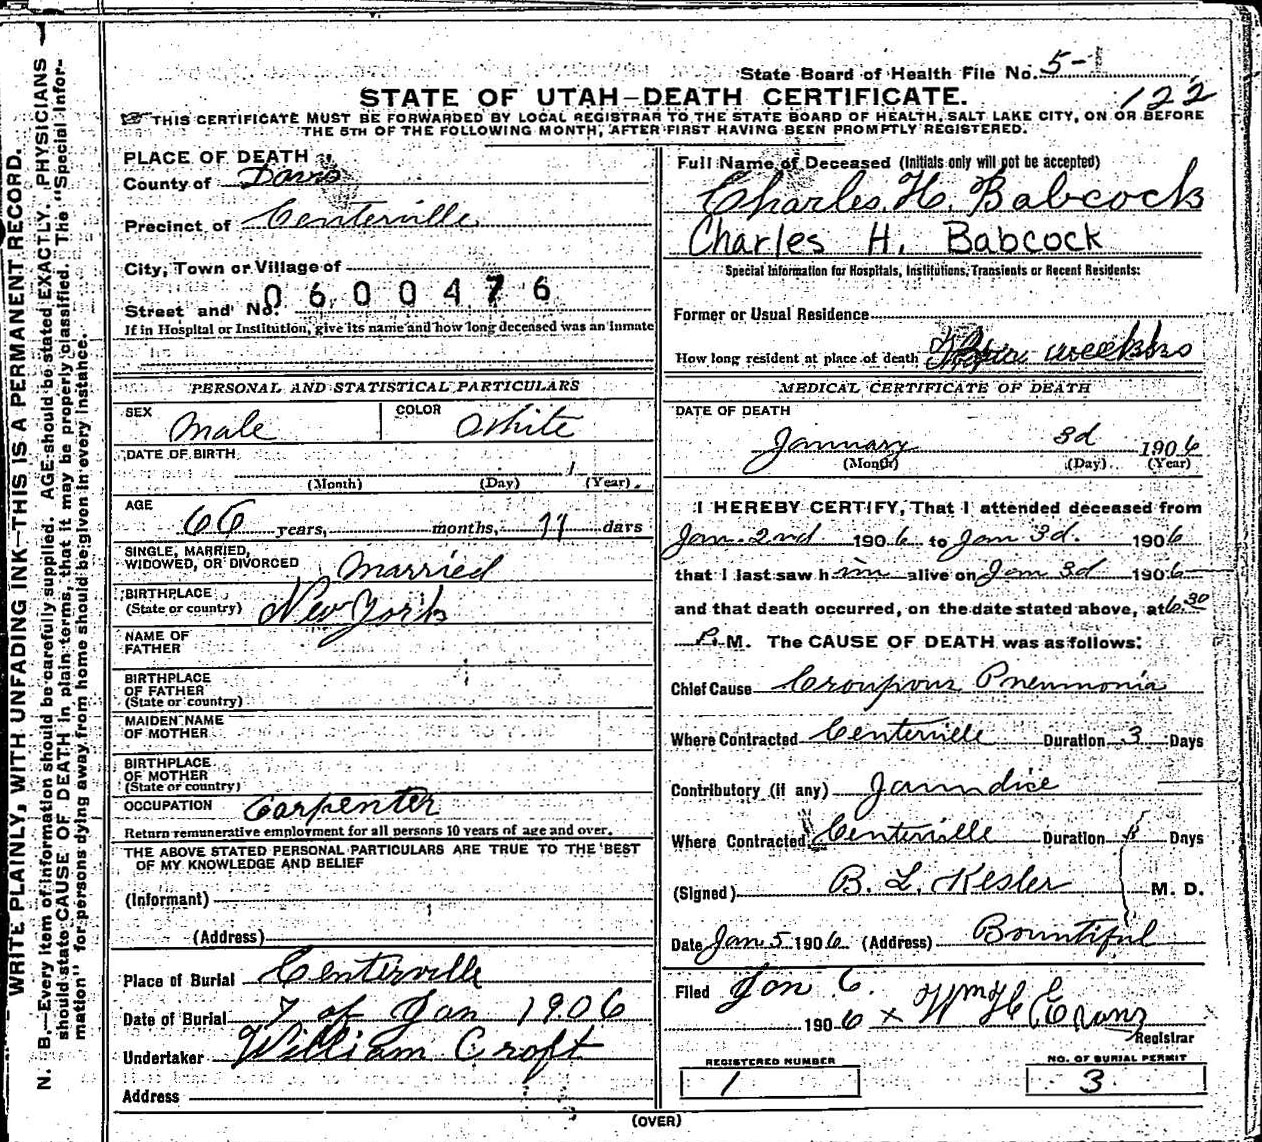 WRITE PLAINLY, WITH UNFADING INK—THIS IS A PERMANENT RECORD.
N. B.—Every item of information should be carefully supplied. AGE should be stated EXACTLY. PHYSICIANS
should state CAUSE OF DEATH in plain terms, that it may be properly classified. The "Special Infor-
mation" for persons dying away from home should be given in every instance.
State Board of Health File No. 5-1
STATE OF UTAH—DEATH CERTIFICATE.
122
THIS CERTIFICATE MUST BE FORWARDED BY LOCAL REGISTRAR TO THE STATE BOARD OF HEALTH, SALT LAKE CITY, ON OR BEFORE
THE 5TH OF THE FOLLOWING MONTH, AFTER FIRST HAVING BEEN PROMPTLY REGISTERED.
PLACE OF DEATH
County of Davis
Precinct of Centerville
City, Town or Village of
Street and No. 0600476
If in Hospital or Institution, give its name and how long deceased was an inmate
PERSONAL AND STATISTICAL PARTICULARS
SEX Male COLOR White
DATE OF BIRTH
(Month) (Day) 1 (Year)
AGE 66 years, months, 11 days
SINGLE, MARRIED,
WIDOWED, OR DIVORCED Married
BIRTHPLACE
(State or country) New York
NAME OF
FATHER
BIRTHPLACE
OF FATHER
(State or country)
MAIDEN NAME
OF MOTHER
BIRTHPLACE
OF MOTHER
(State or country)
OCCUPATION Carpenter
Return remunerative employment for all persons 10 years of age and over.
THE ABOVE STATED PERSONAL PARTICULARS ARE TRUE TO THE BEST
OF MY KNOWLEDGE AND BELIEF
(Informant)
(Address)
Place of Burial Centerville
Date of Burial 7 of Jan 1906
Undertaker William Croft
Address
Full Name of Deceased (Initials only will not be accepted)
Charles H. Babcock
Charles H. Babcock
Special Information for Hospitals, Institutions, Transients or Recent Residents:
Former or Usual Residence
How long resident at place of death weeks
MEDICAL CERTIFICATE OF DEATH
DATE OF DEATH
January 3d 1906
(Month) (Day) (Year)
I HEREBY CERTIFY, That I attended deceased from
Jan. 2nd 1906 to Jan 3d. 1906
that I last saw him alive on Jan 3d 1906
and that death occurred, on the date stated above, at 6.30
P. M. The CAUSE OF DEATH was as follows:
Chief Cause Croupous Pneumonia
Where Contracted Centerville Duration 3 Days
Contributory (if any) Jaundice
Where Contracted Centerville Duration Days
(Signed) B. L. Kesler M. D.
Date Jan 5 1906 (Address) Bountiful
Filed Jan 6.
1906 x Wm H Evans
Registrar
REGISTERED NUMBER
1
NO. OF BURIAL PERMIT
3
(OVER)